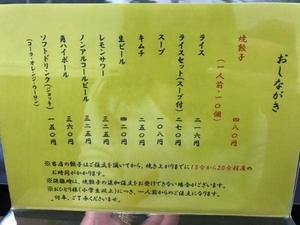 おしながき
焼餃子（一人前・10個） 四八〇円
ライス 二一六円
ライスセット(スープ付) 二七〇円
スープ 一〇八円
キムチ 二五〇円
生ビール 四二〇円
レモンサワー 三二五円
ノンアルコールビール 三二五円
角ハイボール 三六〇円
ソフトドリンク(ジョッキ) 一五〇円
(コーラ・オレンジ・ウーロン)
※当店の餃子はご注文を頂いてから、焼き上がりまでに15分から20分程度の
お時間がかかります。
※混雑時は、焼餃子の追加注文をお受けできない場合がございます。
※おひとり様(小学生以上)につき、一人前からのご注文になります。
何卒、ご了承くださいませ。